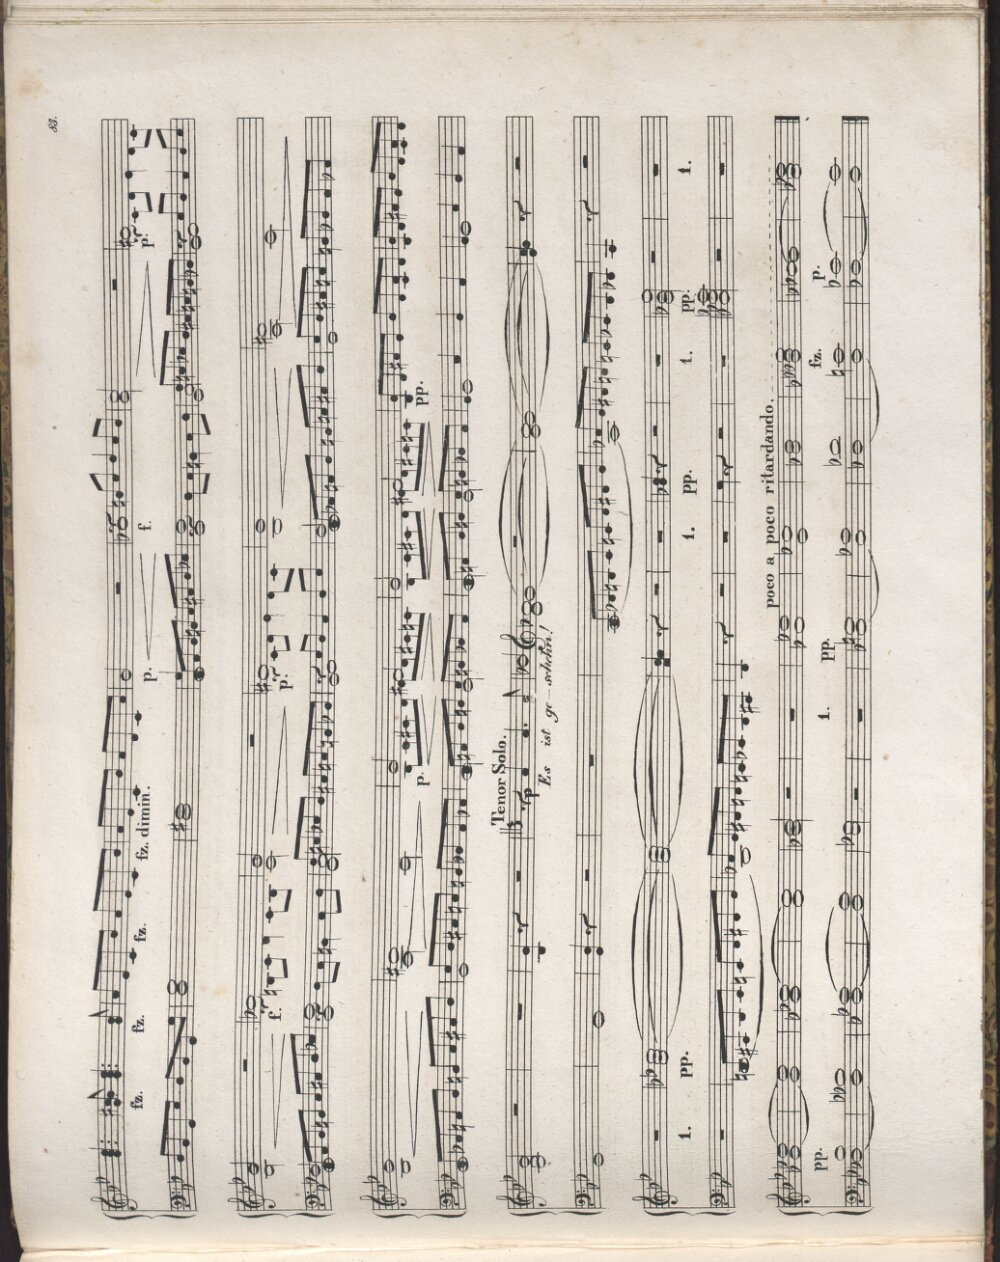 83.
fz. fz. fz. fz. dimin. p. f. p.
f. p.
p. pp.
Tenor Solo.
Es ist ge-schehn!
1. pp. 1. pp. 1. pp. 1.
poco a poco ritardando.
pp. 1. pp. fz. p.